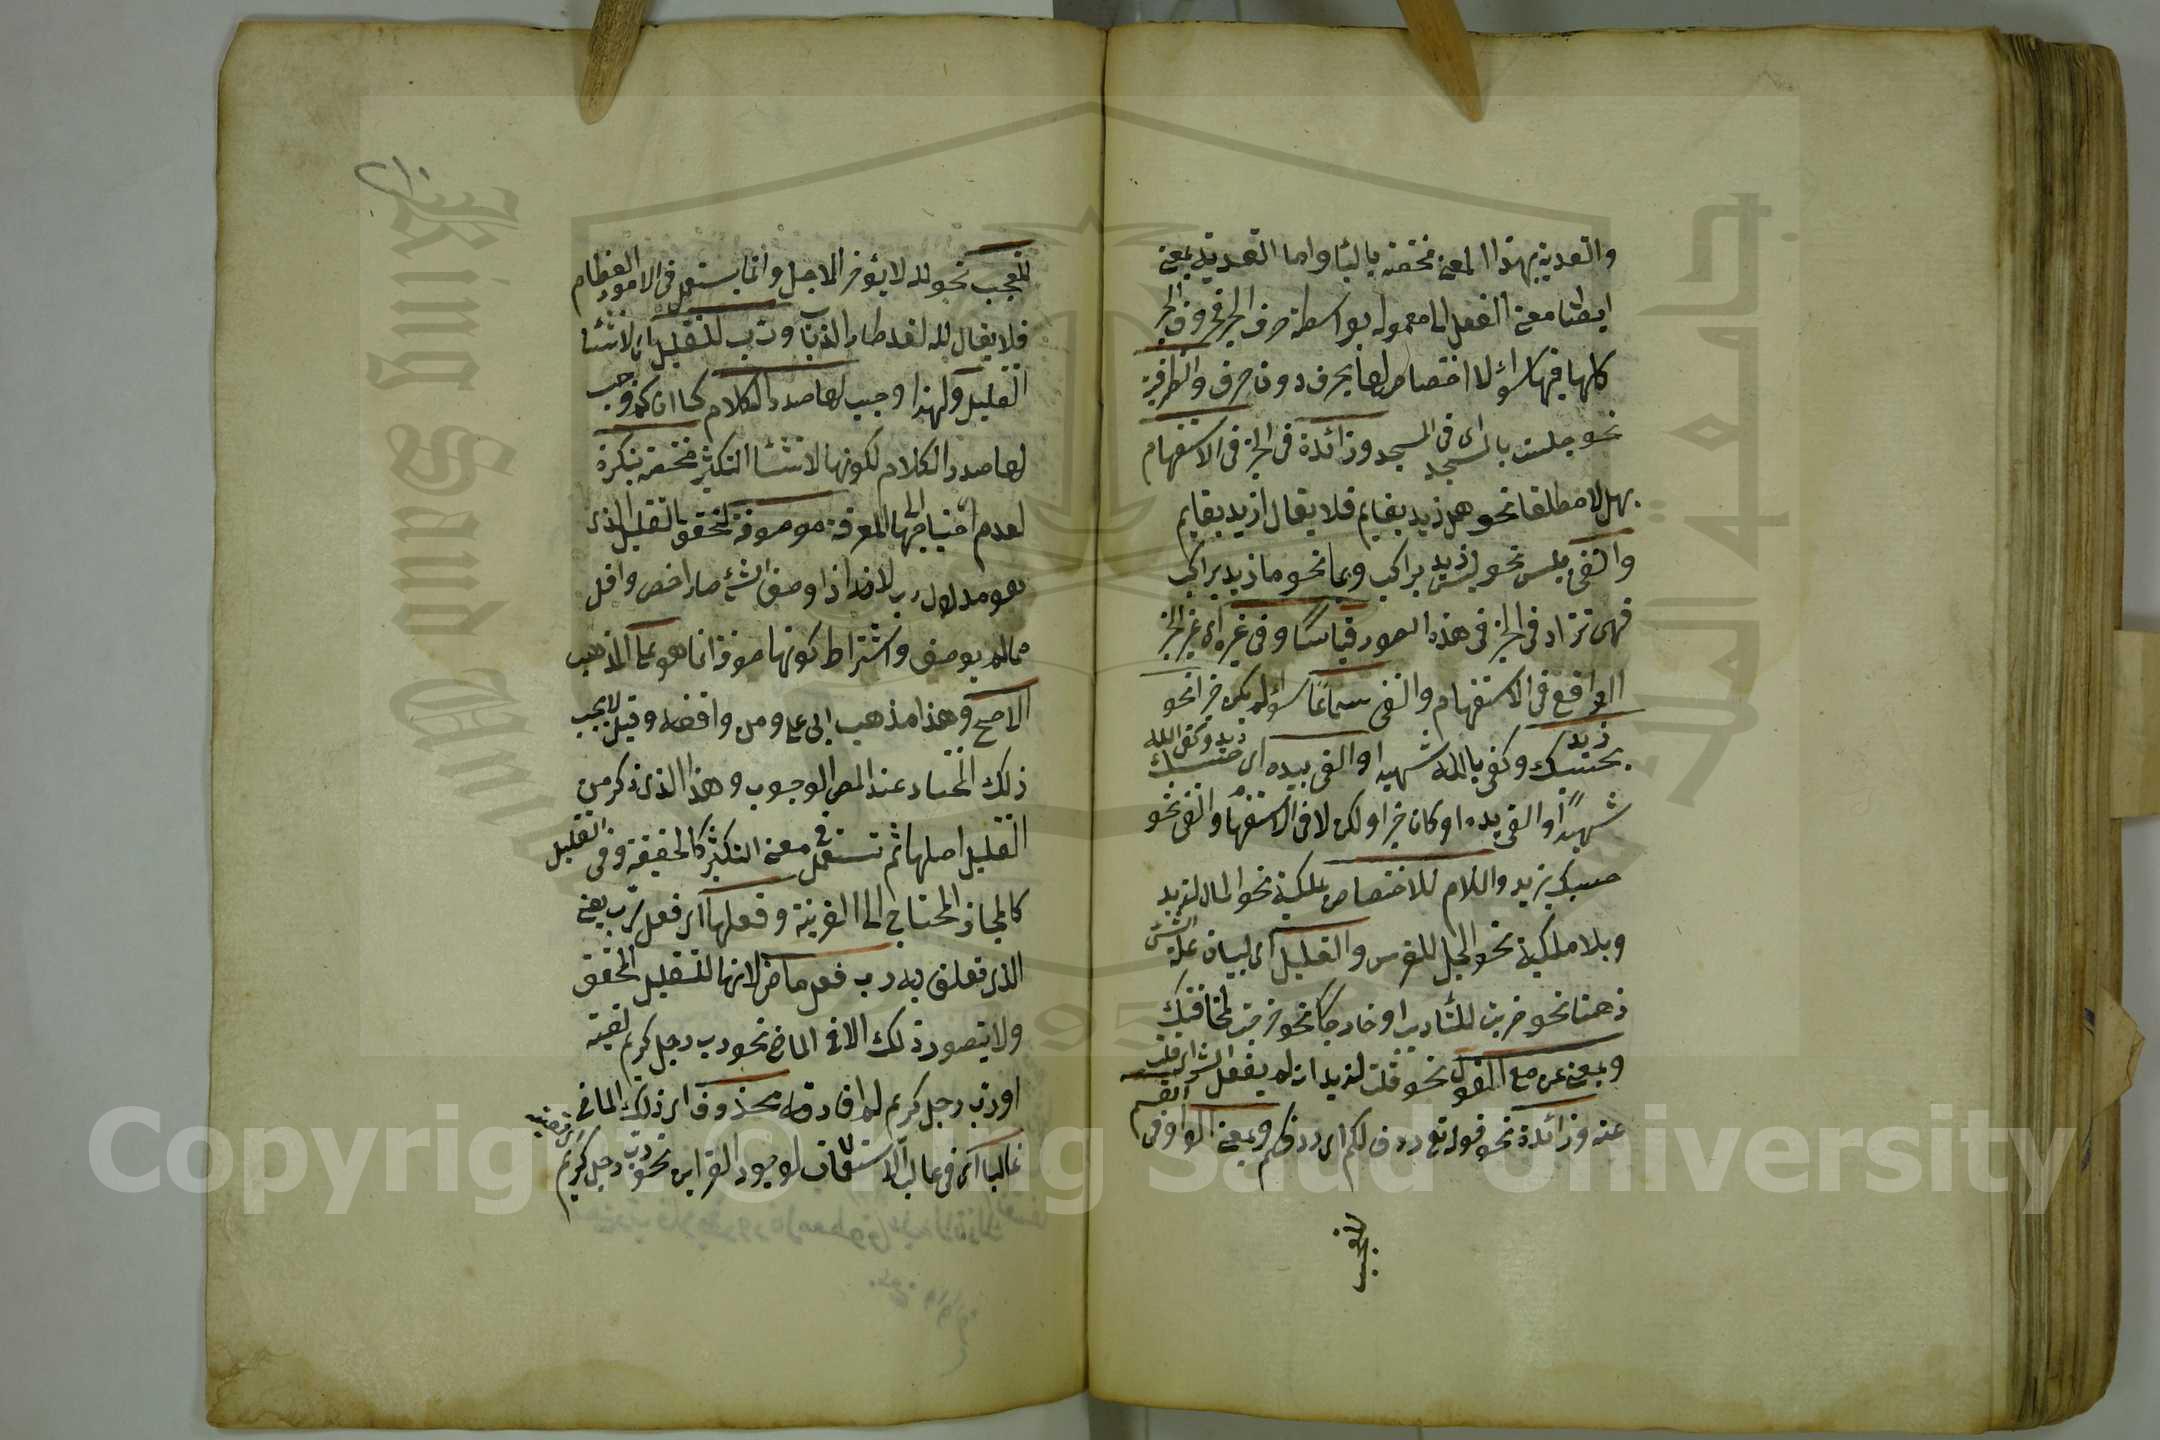 والتعدية بهذا المعنى مختصة بالباء واما التعدية بمعنى
ايصال معنى الفعل الى معموله بواسطة حرف الجر فحروف الجر
كلها فيها سواء لا اختصاص لها بحرف دون حرف والظرفية
نحو جلست بالمسجد اى فى المسجد وزائدة فى الخبر فى الاستفهام
بهل لا مطلقا نحو هل زيد بقايم فلا يقال ازيد بقايم
والنفى بليس نحو ليس زيد براكب وبما نحو ما زيد براكب
فهى تزاد فى الخبر فى هذه الصور قياسا وفى غيره اى غير الخبر
الواقع فى الاستفهام والنفى سماعا سواء لم يكن خبرا نحو
بحسبك زيد وكفى بالله شهيدا والقى بيده اى حسبك زيد وكفى الله
شهيدا والقى يده او كان خبرا ولكن لا فى الاستفهام والنفى نحو
حسبك بزيد واللام للاختصاص بملكية نحو المال لزيد
وبلا ملكية نحو الجل للفرس والتعليل اى لبيان علة الشئ
ذهنا نحو ضربت للتاديب او خارجا نحو خرجت لمخافتك
وبمعنى عن مع القول نحو قلت لزيد انه لم يفعل الشر اى قلت
عنه وزائدة نحو قوله تع ردف لكم اى ردفكم وبمعنى الواو فى القسم
للتعجب
للتعجب نحو لله لا يؤخر الاجل وانما يستعمل فى الامور العظام
فلا يقال لله لقد طار الذباب ورب للتقليل اى لانشاء
التقليل ولهذا وجب لها صدر الكلام كما ان كم وجب
لها صدر الكلام لكونها لانشاء التكثير مختصة بنكرة
لعدم احتياجها الى المعرفة موصوفة لتحقق التقليل الذى
هو مدلول رب لانه اذا وصف الشئ صار اخص واقل
مما لم يوصف واشتراط كونها موصوفة انما هو على المذهب
الاصح وهذا مذهب ابى على ومن وافقه وقيل لا يجب
ذلك المختار عند المص الوجوب وهذا الذى ذكر من
التقليل اصلها ثم تستعمل فى معنى التكثير كالحقيقة وفى التقليل
كالمجاز المحتاج الى القرينة وفعلها اى فعل رب يعنى
الذى تعلق به رب فعل ماض لانها للتقليل المحقق
ولا يتصور ذلك الا فى الماضى نحو رب رجل كريم لقيته
او رب رجل كريم لم افارقه محذوف اى ذلك الماضى
غالبا اى فى غالب الاستعمالات لوجود القراين نحو رب رجل كريم اى لقيته